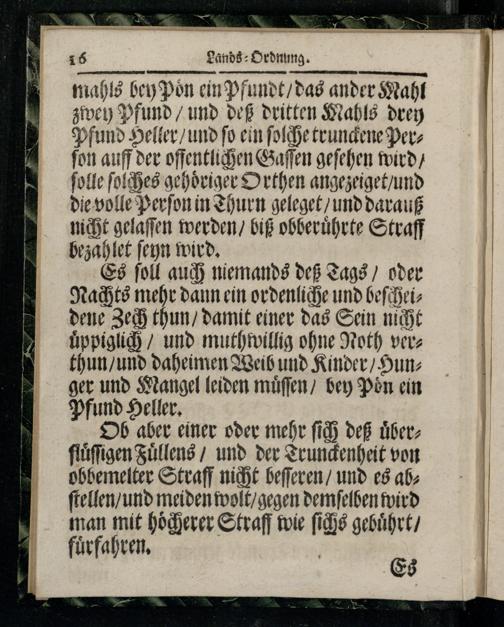 16 Lands-Ordnung.
mahls bey Pön ein Pfundt/ das ander Mahl
zwey Pfund/ und deß dritten Mahls drey
Pfund Heller/ und so ein solche trunckene Per-
son auff der offentlichen Gassen gesehen wird/
solle solches gehöriger Orthen angezeiget/ und
die volle Person in Thurn geleget/ und darauß
nicht gelassen werden/ biß obberührte Straff
bezahlet seyn wird.
Es soll auch niemands deß Tags/ oder
Nachts mehr dann ein ordenliche und beschei-
dene Zech thun/ damit einer das Sein nicht
üppiglich/ und muthwillig ohne Noth ver-
thun/ und daheimen Weib und Kinder/ Hun-
ger und Mangel leiden müssen/ bey Pön ein
Pfund Heller.
Ob aber einer oder mehr sich deß über-
flüssigen Füllens/ und der Trunckenheit von
obbemelter Straff nicht besseren/ und es ab-
stellen/ und meiden wolt/ gegen demselben wird
man mit höcherer Straff wie sichs gebührt/
fürfahren.
Es